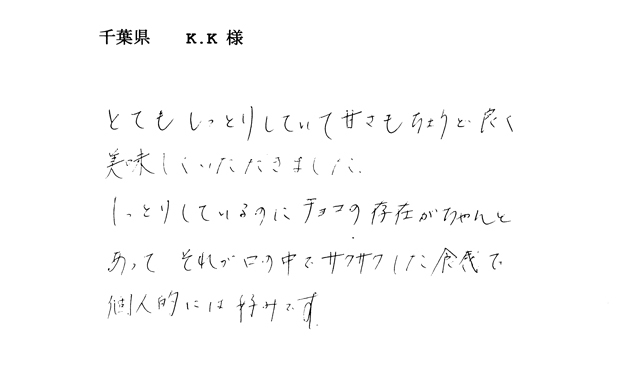 千葉県 K.K 様
とてもしっとりしていて甘さもちょうど良く
美味しくいただきました。
しっとりしているのにチョコの存在がちゃんと
あって それが口の中でサクサクした食感で
個人的には好みです。